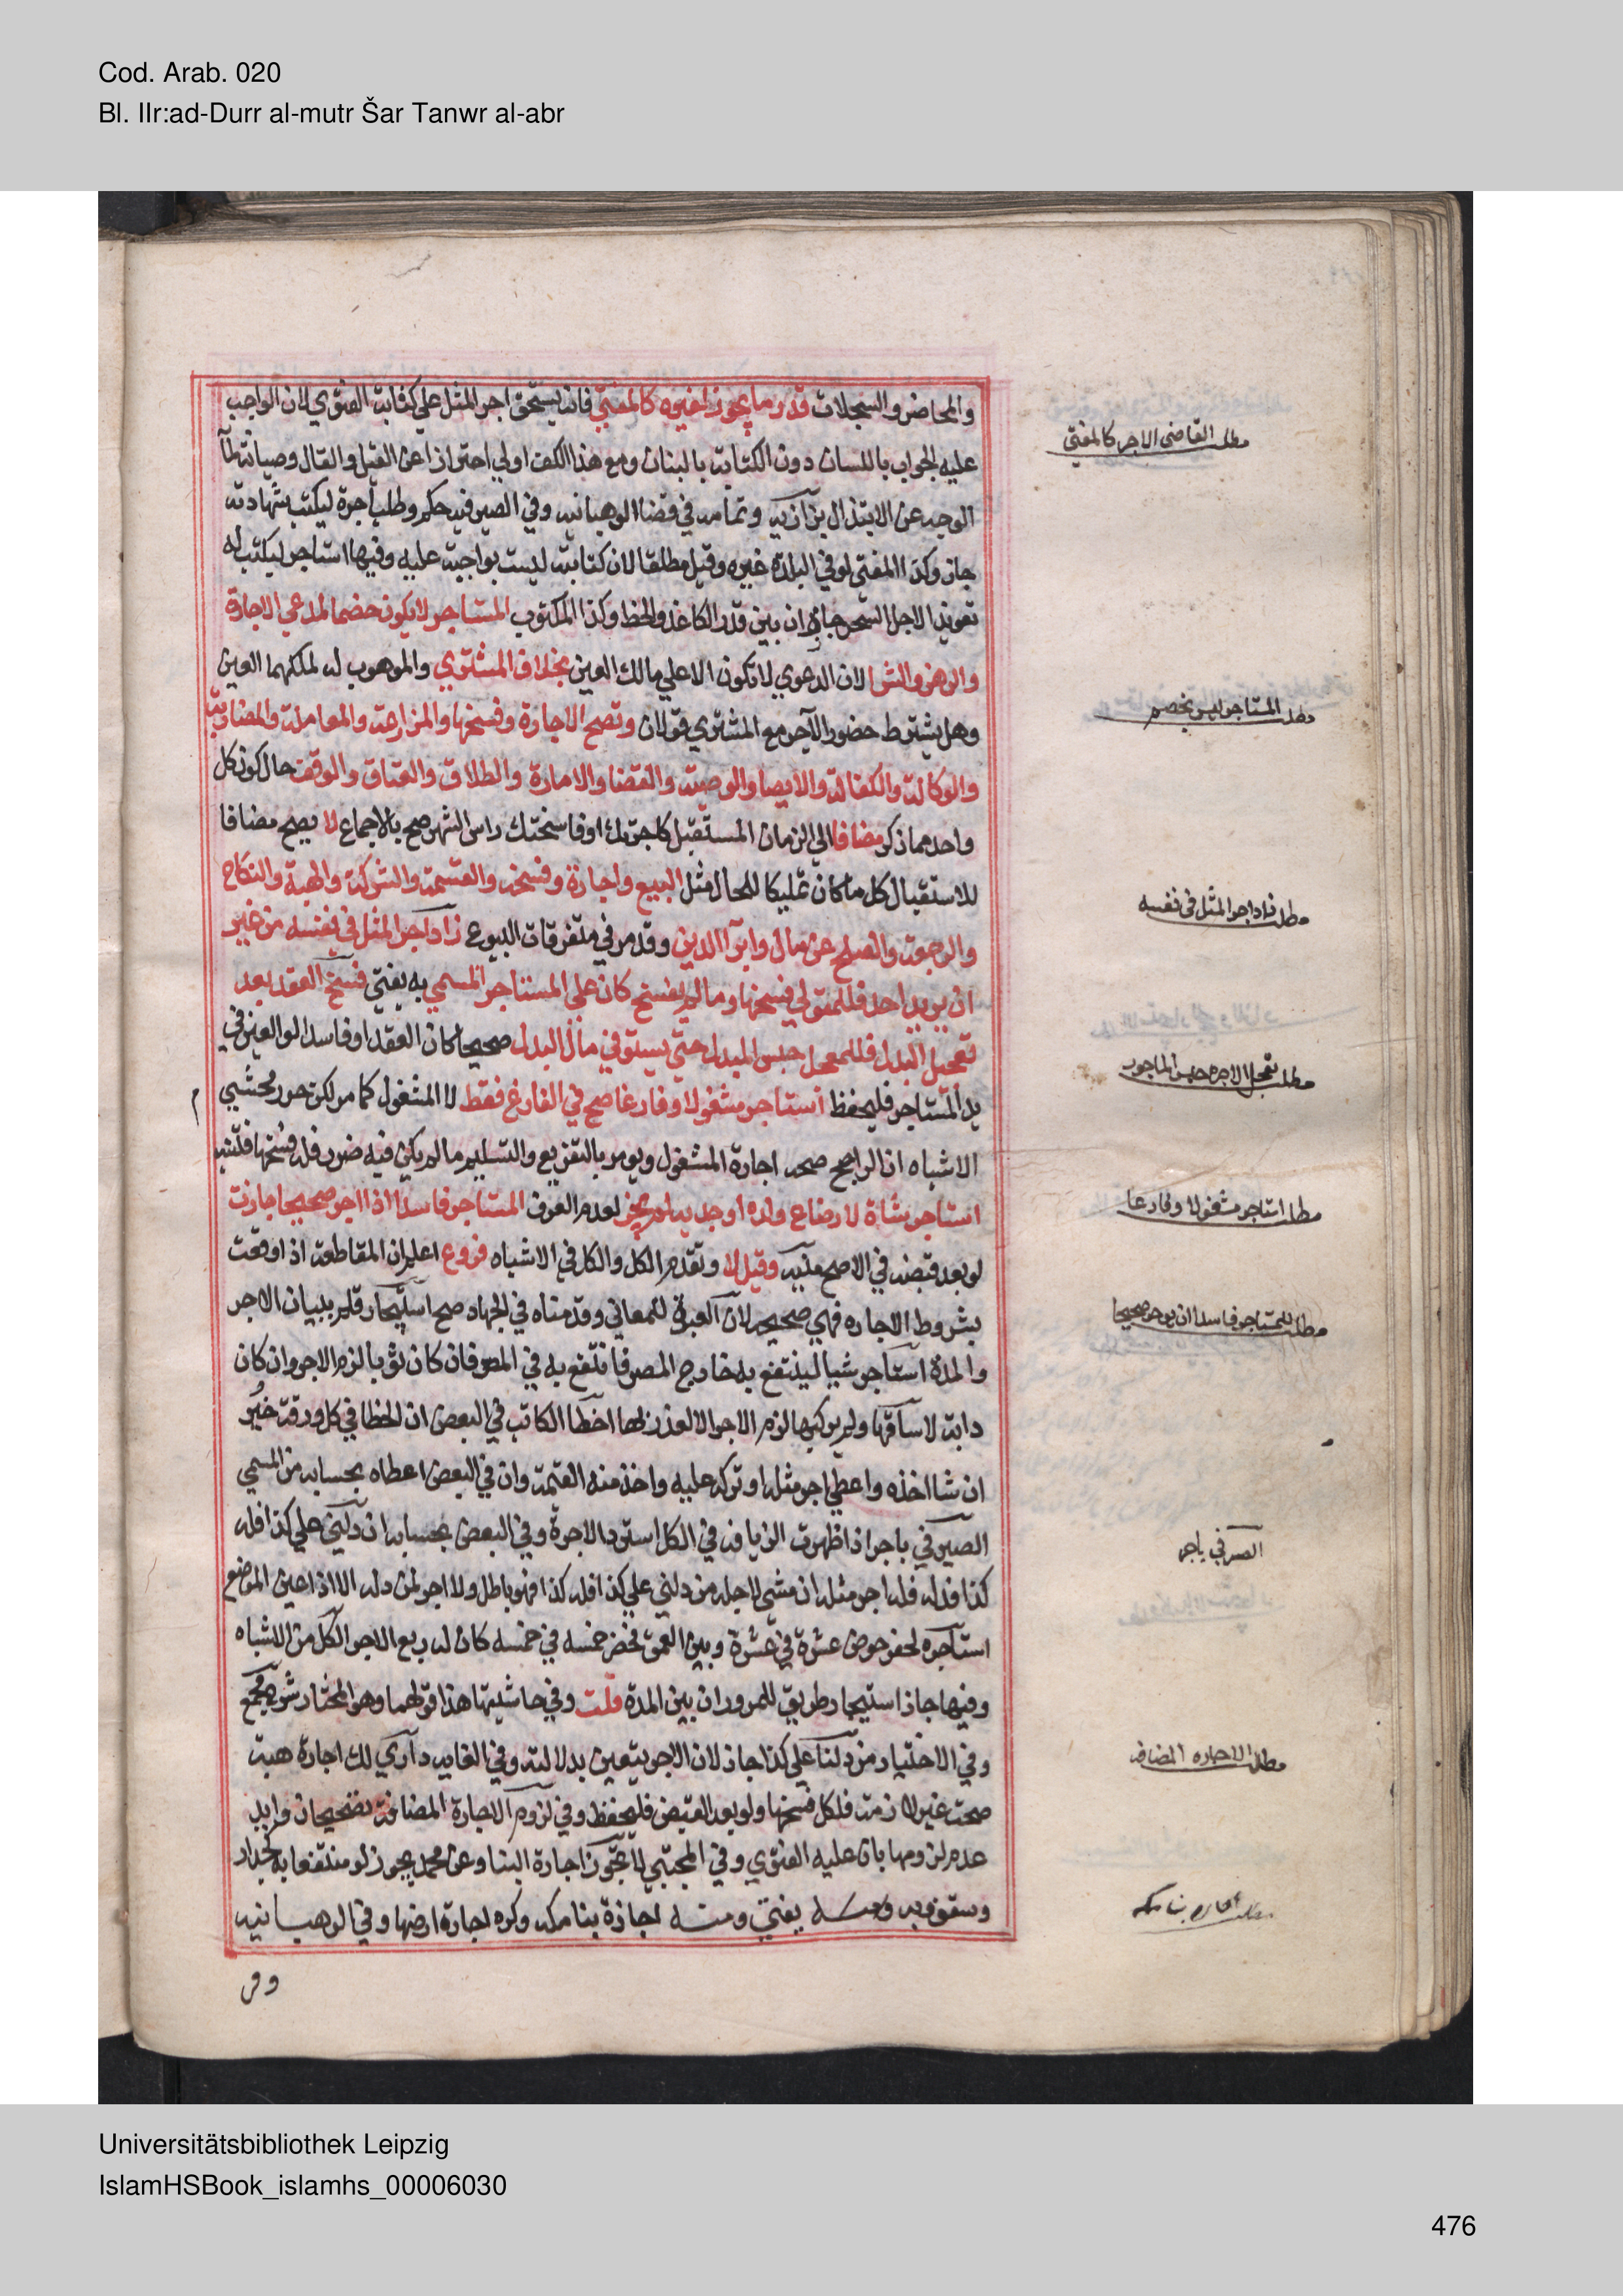 Cod. Arab. 020
Bl. IIr:ad-Durr al-mutr Šar Tanwr al-abr
والمحاضر والسجلات قدر ما يجوز لغيره كالمفتي فانه يستحق اجر المثل علي كتابة الفتوي لان الواجب
مطلب القاضي الاجر كالمفتي
عليه الجواب باللسان دون الكتابة بالبنان ومع هذا الكف اولي احترازا عن القيل والقال وصيانة لمآ
الوجه عن الابتذال بزازية وتمامه في قضا الوهبانية وفي الصيرفية حكم وطلب اجرة ليكتب شهادته
جاز وكذا المفتي لو في البلدة غيره وقيل مطلقا لان كتابته ليست بواجبة عليه وفيها استاجر ليكتب له
تعويذا لاجل السحر جاز ان بين قدر الكاغذ والخط وكذا المكتوب المستاجر لا يكون خصما لمدعي الاجارة
والرهن والشرا لان الدعوي لا تكون الا علي مالك العين بخلاف المشتري والموهوب له لملكهما العين
المستاجر ليس بخصم
وهل يشترط حضور الآجر مع المشتري قولان وتصح الاجارة وفسخها والمزارعة والمعاملة والمضاربة
والوكالة والكفالة والايصا والوصية والقضا والامارة والطلاق والعتاق والوقف حال كون كل
واحد مما ذكر مضافا الي الزمان المستقبل كاجرتك او فاسختك راس الشهر صح بالاجماع لا يصح مضافا
للاستقبال كل ما كان تمليكا للحال مثل البيع واجازة وفسخه والقسمة والشركة والهبة والنكاح
مطلب زاد اجر المثل في نفسه
والرجعة والصلح عن مال وابرآ الدين وقد مر في متفرقات البيوع زاد اجر المثل في نفسه من غير
ان يزيد احد فللمتولي فسخها وما لم يفسخ كان علي المستاجر المسمي به يفتي فسخ العقد بعد
تعجيل البدل فللمعجل حبس المبدل حتي يستوفي مال البدل صحيحا كان العقد او فاسدا لو العين في
مطلب تعجل الاجره حبس الماجور
يد المستاجر فليحفظ استاجر مشغولا وفارغا صح في الفارغ فقط لا المشغول كما مر لكن حرر محشي
الاشباه ان الراجح صحة اجارة المشغول ويومر بالتفريغ والتسليم ما لم يكن فيه ضرر فله فسخها فتنبه
استاجر شاة لارضاع ولده او جديه لم يجز لعدم العرف المستاجر فاسدا اذا اجر صحيحا جازت
مطلب استاجر مشغولا وفارغا
لو بعد قبضه في الاصح منية وقيل لا وتقدم الكل والكل في الاشباه فروع اعلم ان المقاطعة اذا وقعت
بشروط الاجاره فهي صحيحة لان العبرة للمعاني وقدمناه في الجهاد صح استيجار قلم ببيان الاجر
مطلب للمستاجر فاسدا ان يوجر صحيحا
والمدة استاجر شيا لينتفع به خارج المصر فانتفع به في المصر فان كان ثوبا لزم الاجر وان كان
دابة لا ساقها ولم يركبها لزم الاجر الا لعذر بها اخطا الكاتب في البعض ان الخطا في كل ورقة خير
ان شا اخذه واعطي اجر مثله او تركه عليه واخذ منه القيمة وان في البعض اعطاه بحسابه من المسمي
الصيرفي باجر اذا ظهرت الزيافة في الكل استرد الاجرة وفي البعض بحسابه ان دلني علي كذا فله
الصرفي باجر
كذا فدله فله اجر مثله ان مشي لاجله من دلني علي كذا فله كذا فهو باطل ولا اجر لمن دله الا اذا عين الموضع
استاجره لحفر حوض عشرة في عشرة وبين العمق فحفر خمسه في خمسه كان له ربع الاجر الكل من الاشباه
وفيها جاز استيجار طريق للمرور ان بين المدة قلت وفي حاشيتها هذا قولهما وهو المختار شرح مجمع
وفي الاختيار من دلنا علي كذا جاز لان الاجر يتعين بدلالته وفي الغاية داري لك اجارة هبة
مطلب الاجاره المضافه
صحت غير لازمة فلكل فسخها ولو بعد القبض فليحفظ وفي لزوم الاجارة المضافة تصحيحان وايد
عدم لزومها بان عليه الفتوي وفي المجتبي لا تجوز اجارة البنا وعن محمد يجوز لو منتفعا به كجدار
وسقف وبه يفتي ومنه اجازة بنا مكه وكره اجارة ارضها وفي الوهبانيه
مطلب اجاره بنا مكه
وفي
Universitätsbibliothek Leipzig
IslamHSBook_islamhs_00006030
476